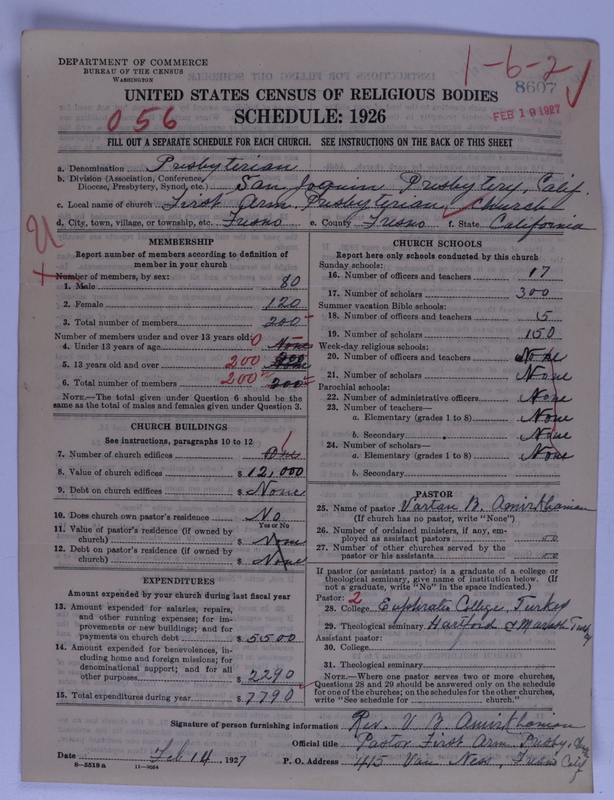 DEPARTMENT OF COMMERCE
BUREAU OF THE CENSUS
WASHINGTON
1-6-2
8607
UNITED STATES CENSUS OF RELIGIOUS BODIES
FEB 19 1927
SCHEDULE: 1926
056
FILL OUT A SEPARATE SCHEDULE FOR EACH CHURCH. SEE INSTRUCTIONS ON THE BACK OF THIS SHEET
a. Denomination Presbyterian
b. Division (Association, Conference, Diocese, Presbytery, Synod, etc.) San Joquin Presbytery, Calif.
c. Local name of church First Arm. Presbyterian Church
d. City, town, village, or township, etc. Fresno e. County Fresno f. State California
MEMBERSHIP
Report number of members according to definition of member in your church
Number of members, by sex:
1. Male 80
2. Female 120
3. Total number of members 200
Number of members under and over 13 years old:
4. Under 13 years of age 0 None
5. 13 years old and over 200
6. Total number of members 200 200
NOTE.—The total given under Question 6 should be same as the total of males and females given under Question 3.
CHURCH BUILDINGS
See instructions, paragraphs 10 to 12
7. Number of church edifices 1 One
8. Value of church edifices $ 12,000
9. Debt on church edifices $ None
10. Does church own pastor's residence No
Yes or No
11. Value of pastor's residence (if owned by church) $ None
12. Debt on pastor's residence (if owned by church) $ None
EXPENDITURES
Amount expended by your church during last fiscal year
13. Amount expended for salaries, repairs, and other running expenses; for improvements or new buildings; and for payments on church debt $ 5500
14. Amount expended for benevolences, including home and foreign missions; for denominational support; and for all other purposes $ 2290
15. Total expenditures during year $ 7790
CHURCH SCHOOLS
Report here only schools conducted by this church
Sunday schools:
16. Number of officers and teachers 17
17. Number of scholars 300
Summer vacation Bible schools:
18. Number of officers and teachers 5
19. Number of scholars 150
Week-day religious schools:
20. Number of officers and teachers None
21. Number of scholars None
Parochial schools:
22. Number of administrative officers None
23. Number of teachers—
a. Elementary (grades 1 to 8) None
b. Secondary None
24. Number of scholars—
a. Elementary (grades 1 to 8) None
b. Secondary
PASTOR
25. Name of pastor Vartan B. Amirkhanian
(If church has no pastor, write "None")
26. Number of ordained ministers, if any, employed as assistant pastors
27. Number of other churches served by the pastor or his assistants
If pastor (or assistant pastor) is a graduate of a college or theological seminary, give name of institution below. (If not a graduate, write "No" in the space indicated.)
Pastor: 2
28. College Euphrates College, Turkey
29. Theological seminary Hartford & Marash Turkey
Assistant pastor:
30. College
31. Theological seminary
NOTE.—Where one pastor serves two or more churches, Questions 28 and 29 should be answered only on the schedule for one of the churches; on the schedules for the other churches, write "See schedule for church."
Signature of person furnishing information Rev. V. B. Amirkhanian
Official title Pastor First Arm. Presby. Chu
Date Feb 14, 1927 P. O. Address 415 Van Ness, Fresno Calif
8—5518 a 11—9554